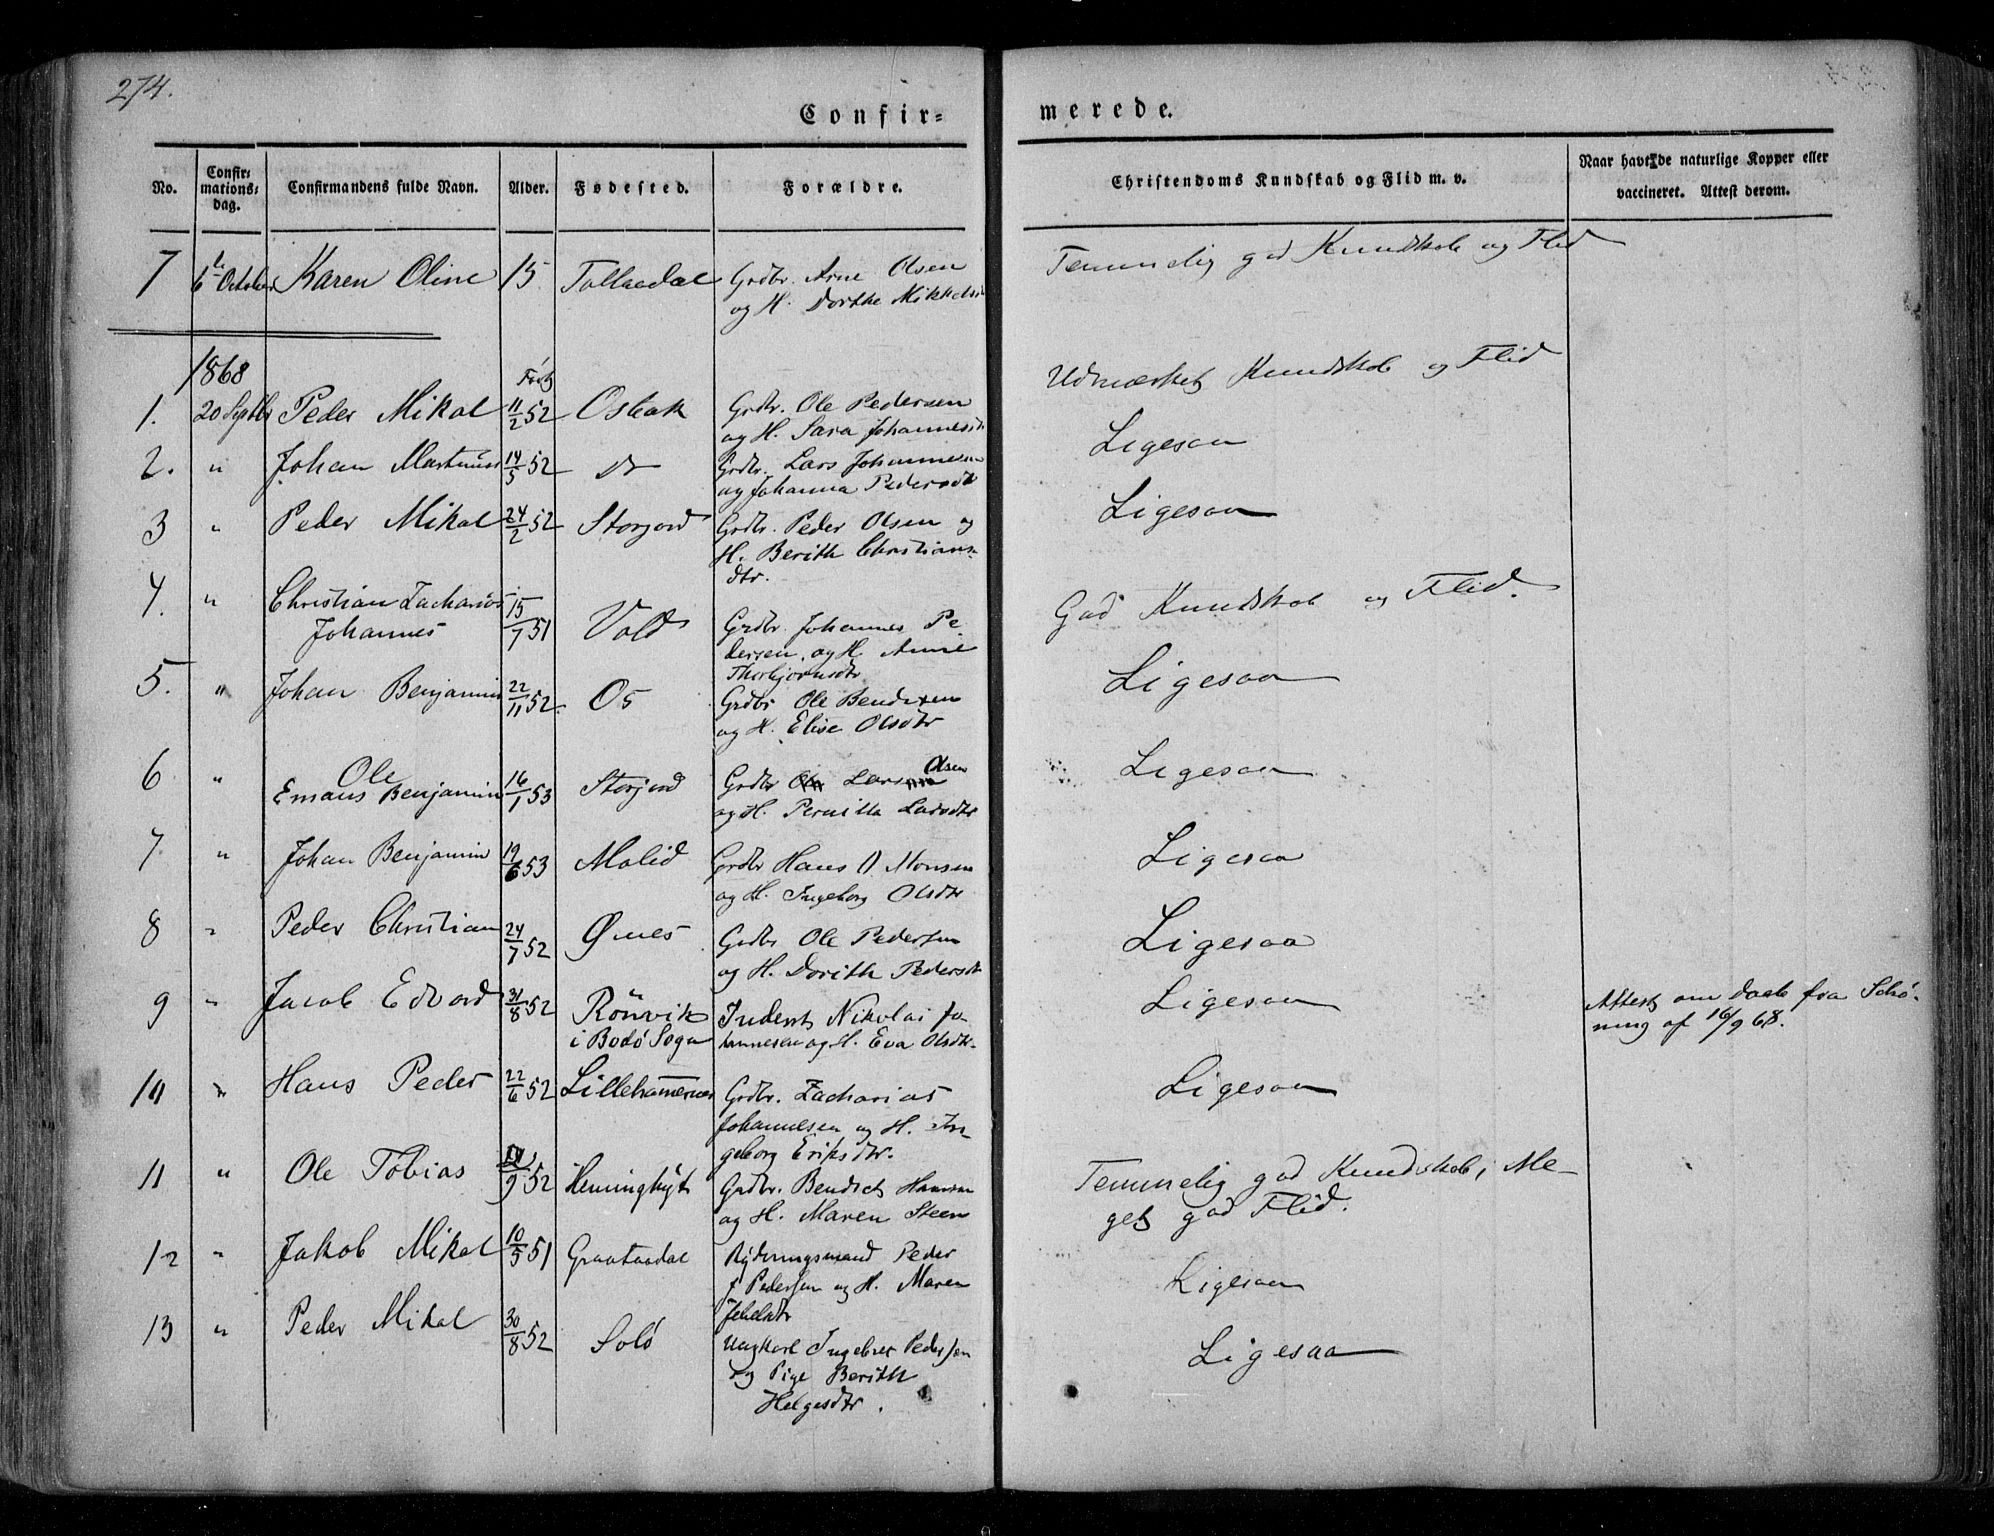 274.
Confir- merede.
No. Confirmations-dag. Confirmandens fulde Navn. Alder. Fødested. Forældre. Christendoms Kundskab og Flid m. v. Naar havt de naturlige Kopper eller vaccineret. Attest derom.
7 6te October Karen Oline 15 Tollaadal Grdbr. Arne Olsen Temmelig god Kundskab og Flid
og H. Dorthe Mikkelsd
1868 Født
1. 20 Septbr Peder Mikal 11/2 52 Osbak Grdbr. Ole Pedersen Udmærket Kundskab og Flid
og H. Sara Johannesdt
2. " Johan Martinus 14/5 52 Do Grdbr. Lars Johannesen Ligesaa
og Johanna Pedersdtr
3 " Peder Mikal 24/2 52 Storjord Grdbr. Peder Olsen og Ligesaa
H. Berith Christians-
dtr.
4. " Christian Zacharias 15/7 51 Vold Grdbr. Johannes Pe- God Kundskab og Flid.
Johannes dersen, og H. Anne
Thorbjørnsdtr
5. " Johan Benjamin 22/11 52. Os Grdbr Ole Bendixen Ligesaa
og H. Elise Olsdtr
6 " Ole 16/1 53 Storjord Grdbr Lars Olsen Ligesaa
Emaus Benjamin og H. Pernilla Larsdtr
7 " Johan Benjamin 19/6 53 Molid Grdbr Hans O. Monsen Ligesaa
og H. Ingeborg Olsdtr
8 " Peder Christian 24/7 52 Ønes Grdbr Ole Pedersen Ligesaa
og H. Dorith Pedersdt
9 " Jacob Edvard 31/8 52 Rönvik Inderst Nikolai Jo- Ligesaa Attest om Daab fra Schø-
i Bodø Sogn hannesen og H. Eva Olsdtr. ning af 16/9 68.
10 " Hans Peder 22/6 52 Lillehamernes Grdbr. Zacharias Ligesaa
Johannesen og H. In-
geborg Eriksdtr.
11 " Ole Tobias /9 52 Heminghyt Grdbr. Bendict Hansen Temmelig god Kundskab, Me-
og H. Maren Steen get god Flid.
12 " Jakob Mikal 10/5 51 Graataadal Rydningsmand Peder Ligesaa
J Pedersen og H. Maren
13 " Peder Mikal 30/8 52 Solø Ungkarl Ingebret Pedersen Ligesaa
og Pige Berith
Helgesdtr.